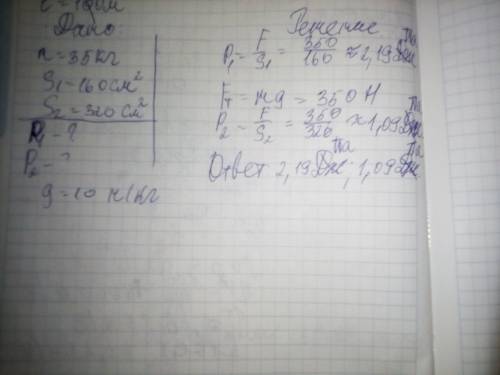 Дано:
m = 35 кг
S1 = 160 см²
S2 = 320 см²
P1 - ?
P2 - ?
g = 10 н/кг
Решение
P1 = F/S1 = 350/160 ≈ 2,19 Па
Fт = mg = 350 Н
P2 = F/S2 = 350/320 ≈ 1,09 Па
Ответ 2,19 Па; 1,09 Па